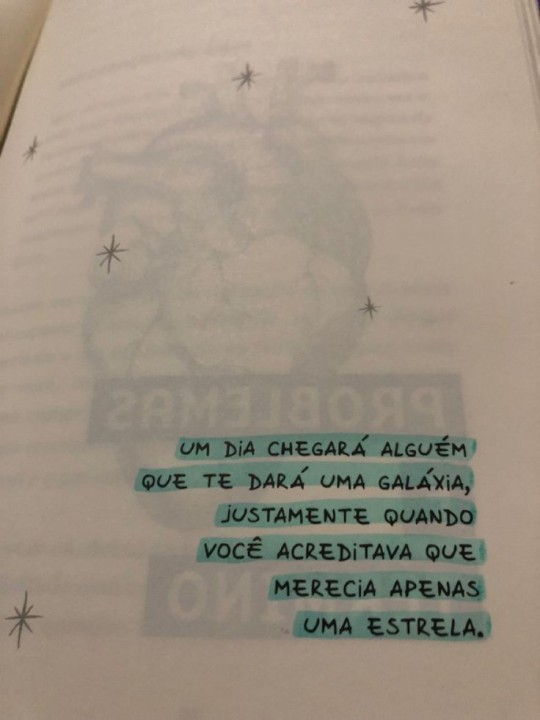 UM DIA CHEGARÁ ALGUÉM
QUE TE DARÁ UMA GALÁXIA,
JUSTAMENTE QUANDO
VOCÊ ACREDITAVA QUE
MERECIA APENAS
UMA ESTRELA.
PROBLEMAS